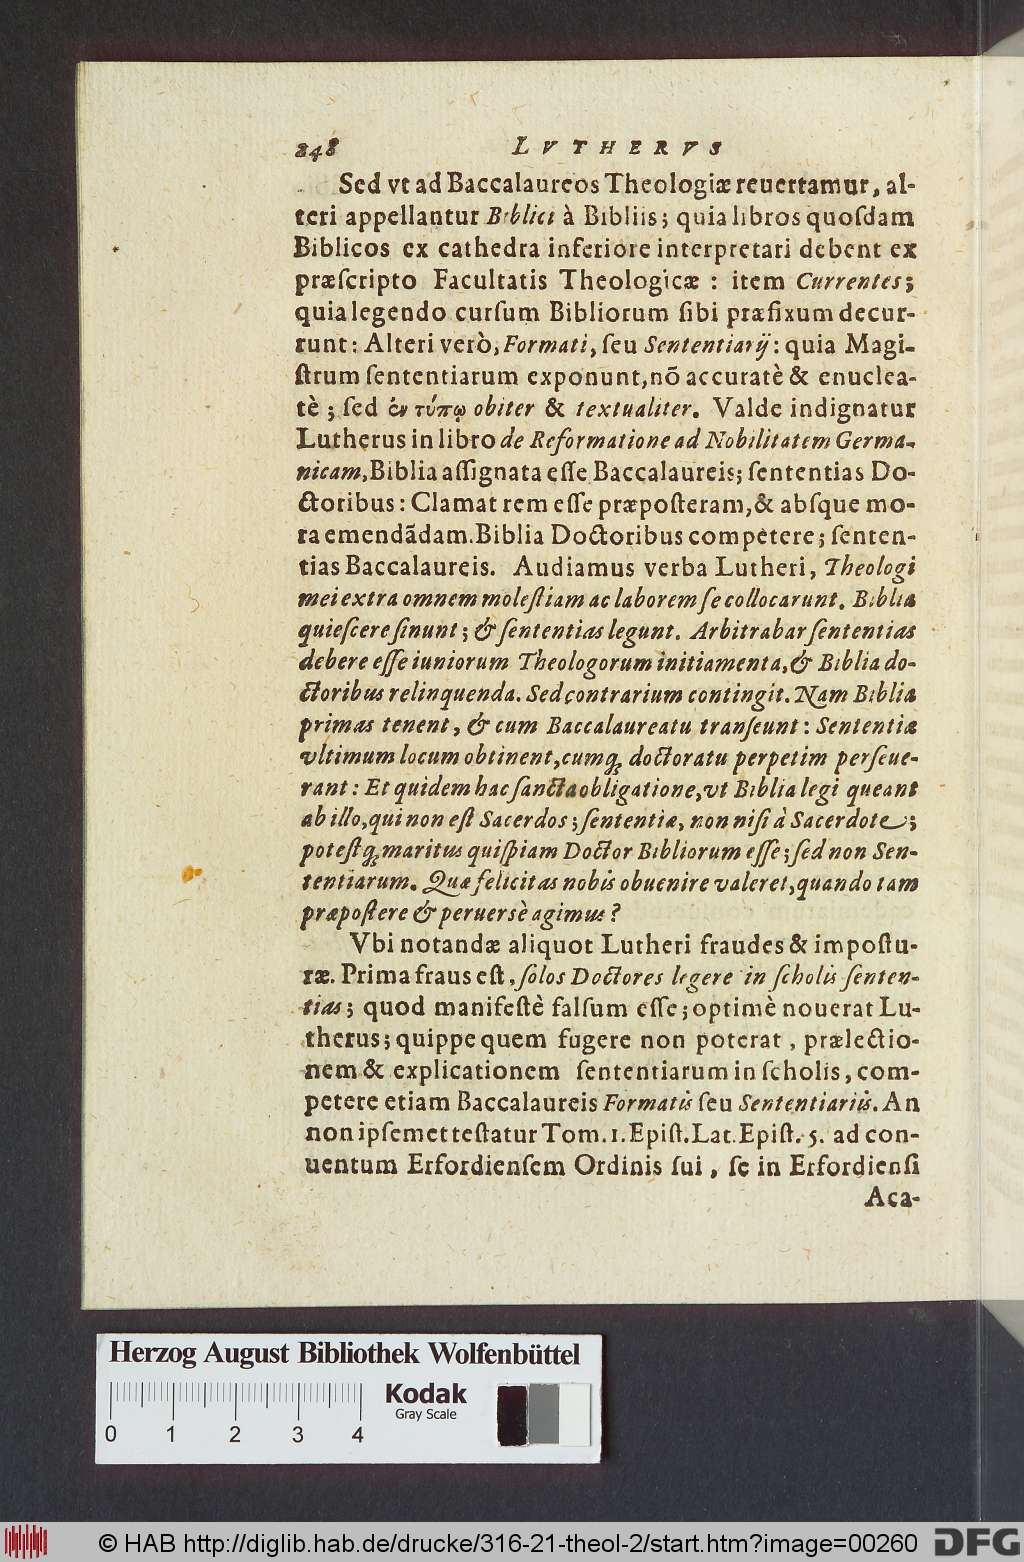 248 LVTHERVS
Sed vt ad Baccalaureos Theologiæ reuertamur, al-
teri appellantur Biblici à Bibliis; quia libros quoſdam
Biblicos ex cathedra inferiore interpretari debent ex
præſcripto Facultatis Theologicæ : item Currentes;
quia legendo curſum Bibliorum ſibi præfixum decur-
runt: Alteri verò, Formati, ſeu Sententiarij: quia Magi-
ſtrum ſententiarum exponunt, nõ accuratè & enuclea-
tè ; ſed ἐν τύπῳ obiter & textualiter. Valde indignatur
Lutherus in libro de Reformatione ad Nobilitatem Germa-
nicam, Biblia aſſignata eſſe Baccalaureis; ſententias Do-
ctoribus: Clamat rem eſſe præpoſteram, & abſque mo-
ra emendãdam. Biblia Doctoribus competere; ſenten-
tias Baccalaureis. Audiamus verba Lutheri, Theologi
mei extra omnem moleſtiam ac laborem ſe collocarunt. Biblia
quieſcere ſinunt; & ſententias legunt. Arbitrabar ſententias
debere eſſe iuniorum Theologorum initiamenta, & Biblia do-
ctoribus relinquenda. Sed contrarium contingit. Nam Biblia
primas tenent, & cum Baccalaureatu tranſeunt: Sententiæ
vltimum locum obtinent, cumq; doctoratu perpetim perſeue-
rant: Et quidem hac ſancta obligatione, vt Biblia legi queant
ab illo, qui non eſt Sacerdos; ſententiæ, non niſi à Sacerdote;
poteſtq; maritus quiſpiam Doctor Bibliorum eſſe; ſed non Sen-
tentiarum. Quæ felicitas nobis obuenire valeret, quando tam
præpoſtere & peruersè agimus?
Vbi notandæ aliquot Lutheri fraudes & impoſtu-
ræ. Prima fraus eſt, ſolos Doctores legere in ſcholis ſenten-
tias; quod manifeſtè falſum eſſe; optimè nouerat Lu-
therus; quippe quem fugere non poterat, prælectio-
nem & explicationem ſententiarum in ſcholis, com-
petere etiam Baccalaureis Formatis ſeu Sententiariis. An
non ipſemet teſtatur Tom. 1. Epiſt. Lat. Epiſt. 5. ad con-
uentum Erfordienſem Ordinis ſui, ſe in Erfordienſi
Aca-
Herzog August Bibliothek Wolfenbüttel
Kodak
Gray Scale
0 1 2 3 4
© HAB http://diglib.hab.de/drucke/316-21-theol-2/start.htm?image=00260 DFG